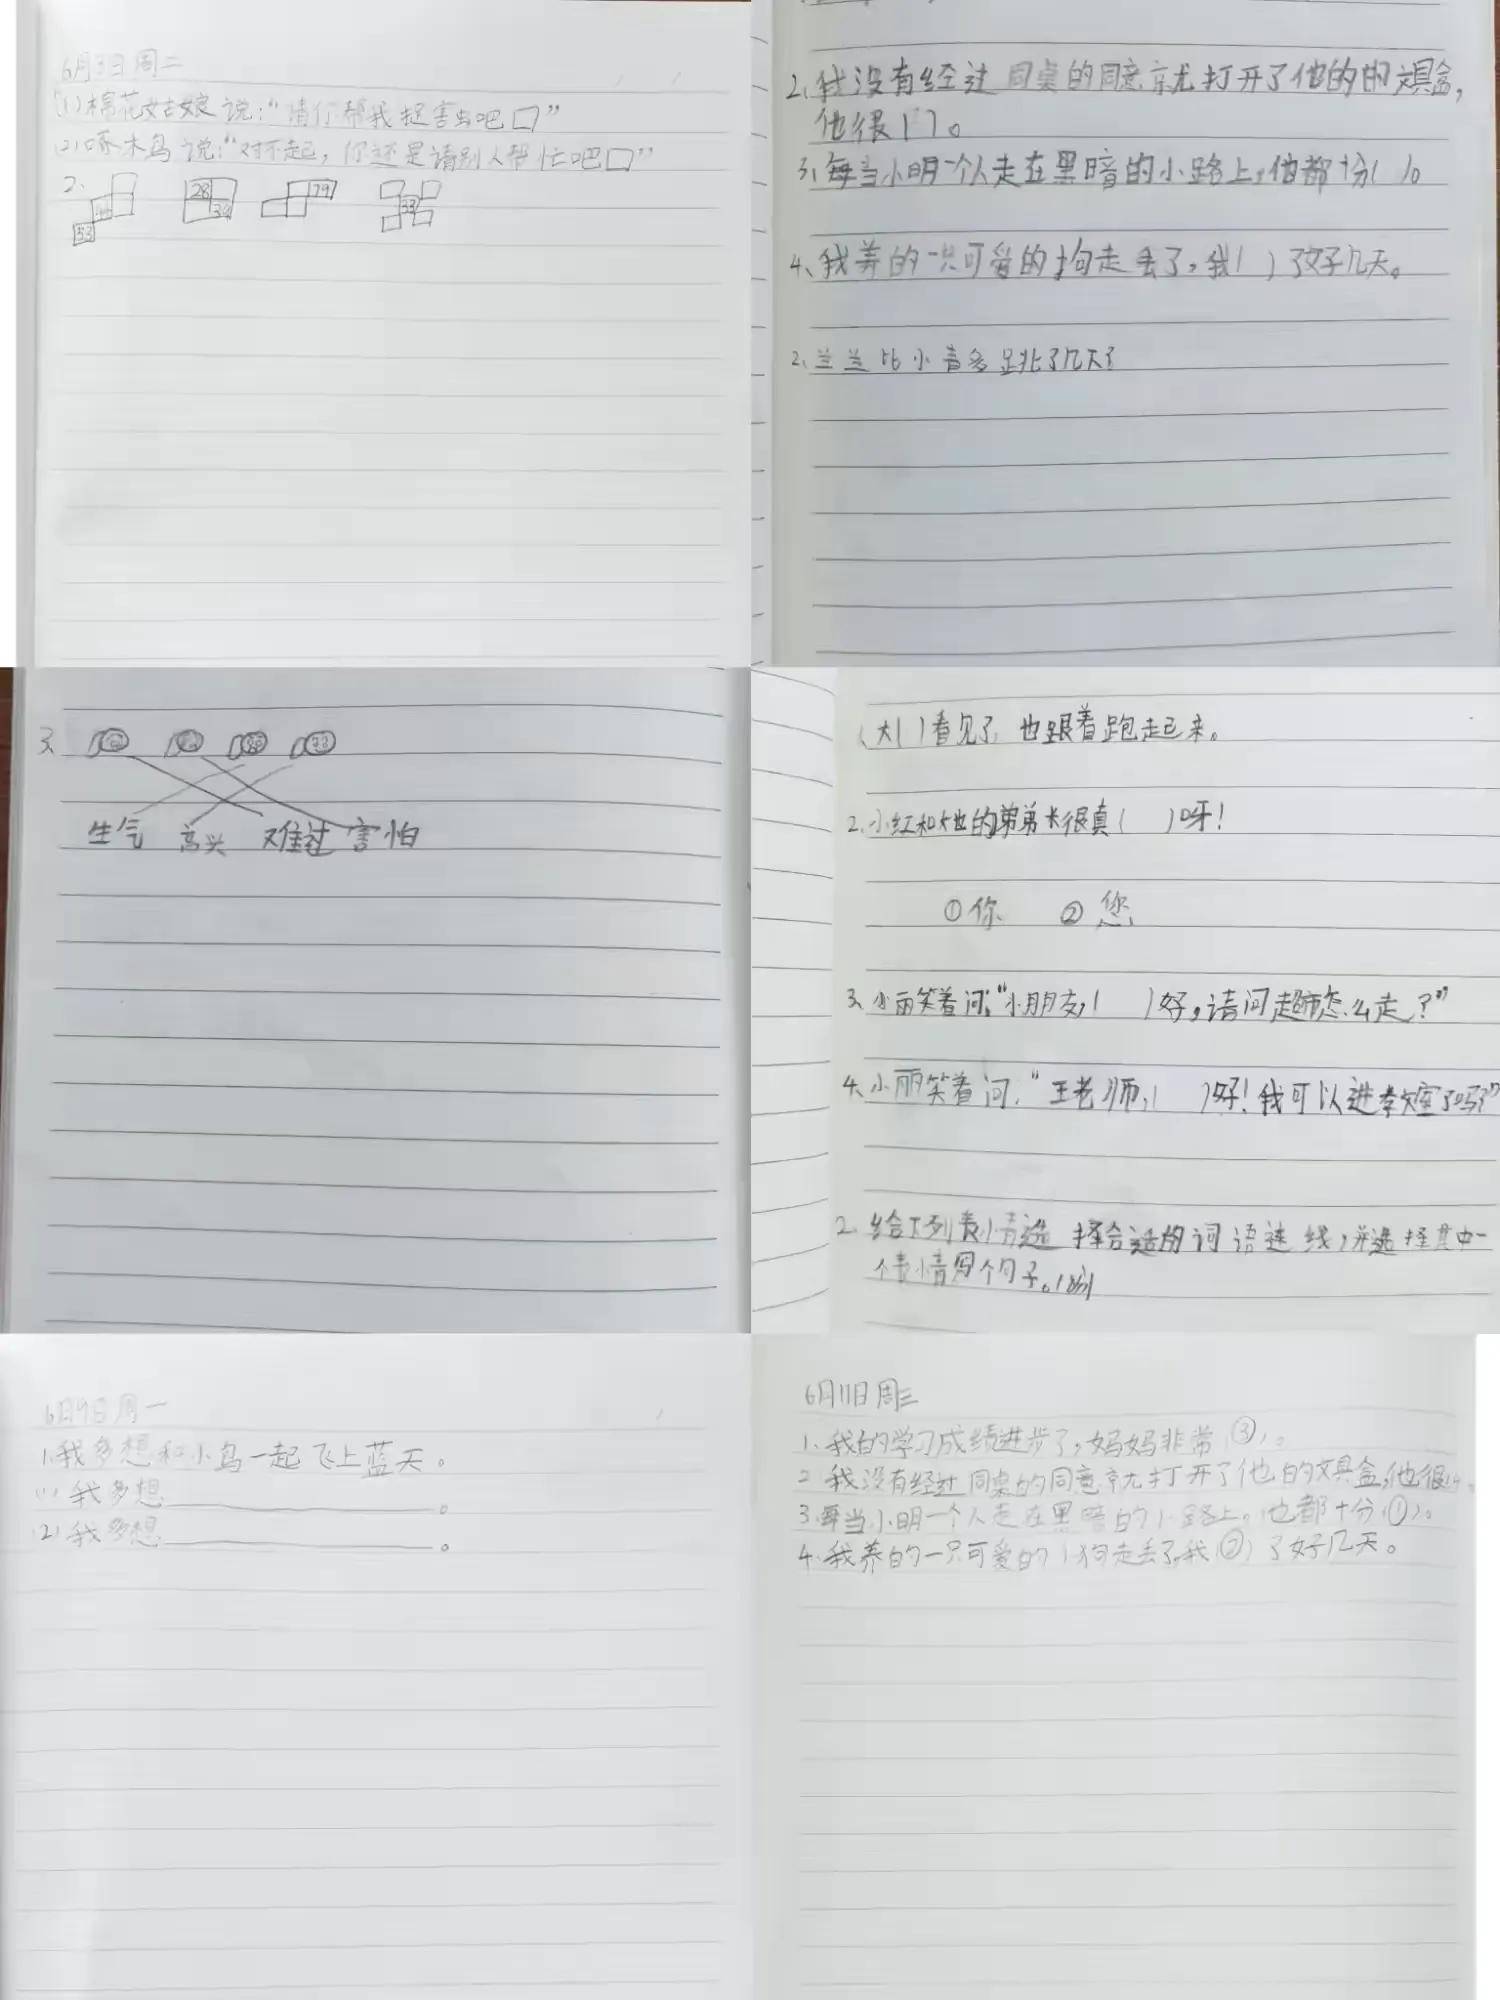 6月3日周二
(1)棉花姑娘说:“请你帮我捉害虫吧口”
(2)啄木鸟说:“对不起,你还是请别人帮忙吧口”
2、
28 29
34 33
53
2、我没有经过同桌的同意就打开了他的的文具盒,
他很( )。
3、每当小明一个人走在黑暗的小路上,他都十分( )。
4、我养的一只可爱的狗走丢了,我( )了好几天。
2、兰兰比小青多跳了几天?
3、
生气 高兴 难过 害怕
、大( )看见了,也跟着跑走起来。
2、小红和她的弟弟长很真( )呀!
①你 ②您
3、小丽笑着问:“小朋友,( )好,请问超市怎么走?”
4、小丽笑着问,“王老师,( )好!我可以进教室了吗?”
2、给下列表情选择合适的词语连线,并选择其中一
个表情写个句子。(例)
6月9日周一
1、我多想和小鸟一起飞上蓝天。
(1)我多想 。
(2)我多想 。
6月11日周三
1、我的学习成绩进步了,妈妈非常(③)。
2、我没有经过同桌的同意就打开了他的文具盒,他很
3、每当小明一个人走在黑暗的小路上。他都十分(①)。
4、我养的一只可爱的小狗走丢了,我(②)了好几天。